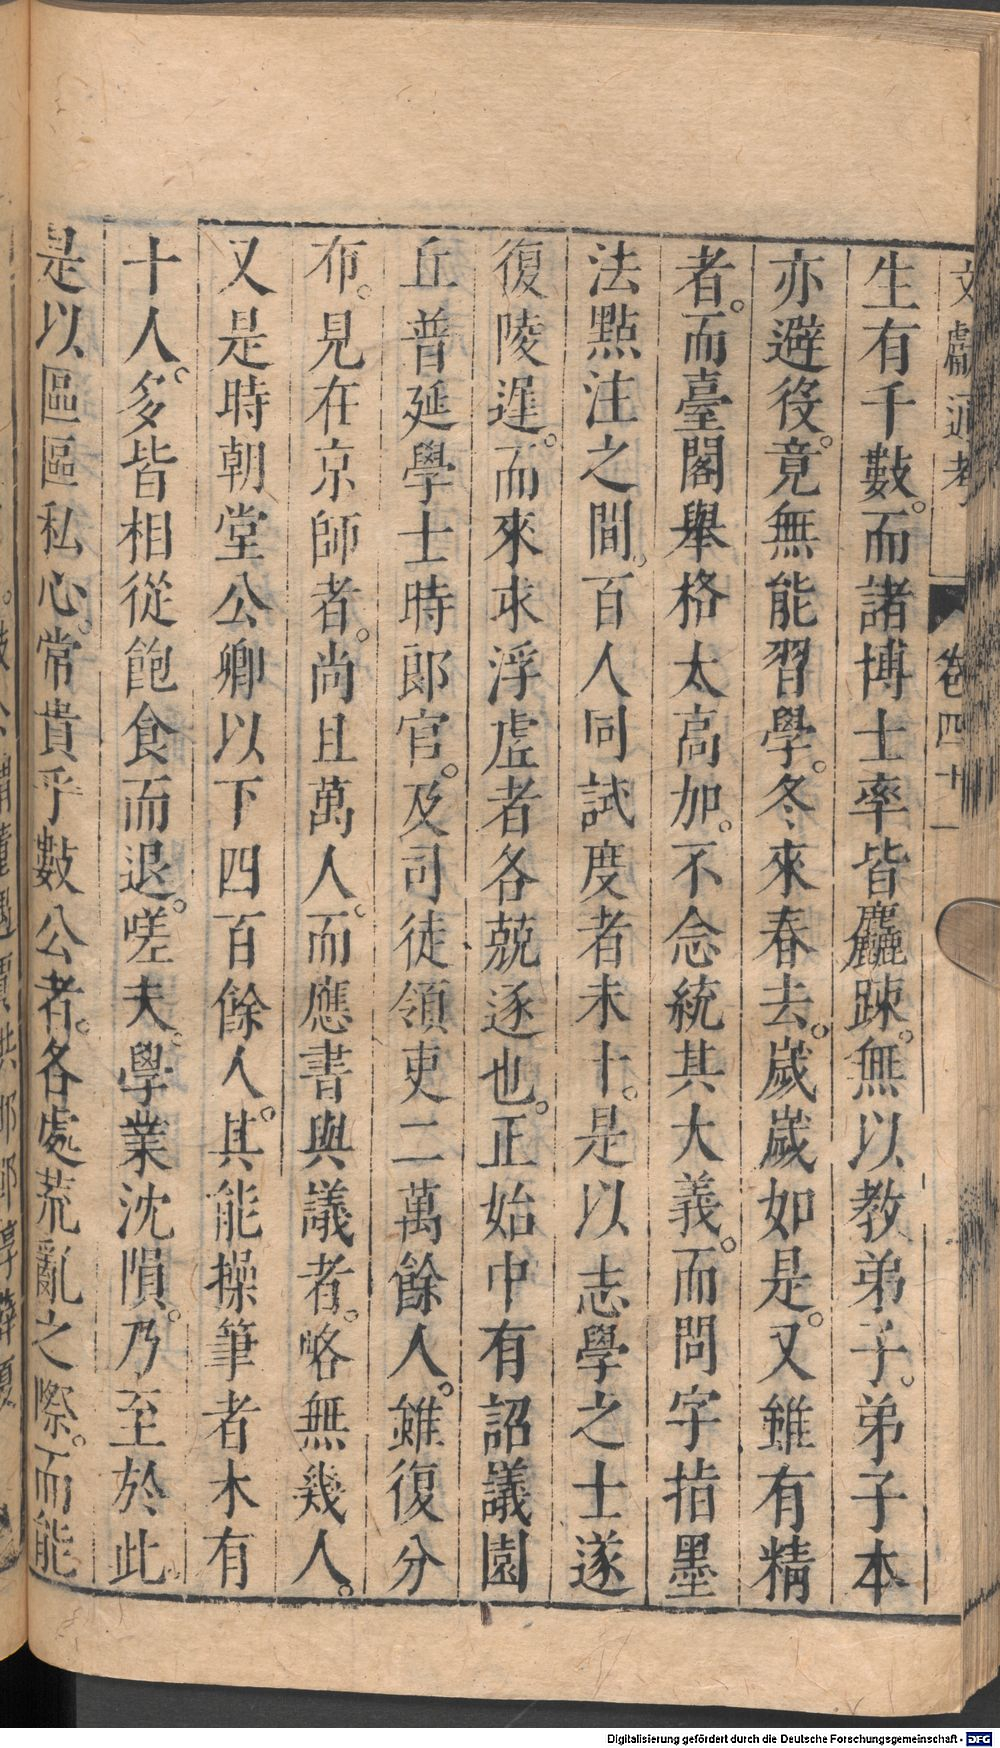 文獻通考 卷四十一
生有千數。而諸博士率皆麤踈。無以教弟子。弟子本
亦避役。竟無能習學。冬來春去。歲歲如是。又雖有精
者。而臺閣舉格太高加。不念統其大義。而問字指墨
法點注之間。百人同試度者未十。是以志學之士遂
復陵遲。而來求浮虛者各兢逐也。正始中有詔議園
丘普延學士時郎官。及司徒領吏二萬餘人。雖復分
布。見在京師者。尚且萬人。而應書與議者。略無幾人。
又是時朝堂公卿以下四百餘人。其能操筆者木有
十人。多皆相從飽食而退。嗟夫。學業沈隕。乃至於此。
是以區區私心。常貴乎數公者。各處荒亂之際。而能
Digitalisierung gefördert durch die Deutsche Forschungsgemeinschaft - DFG